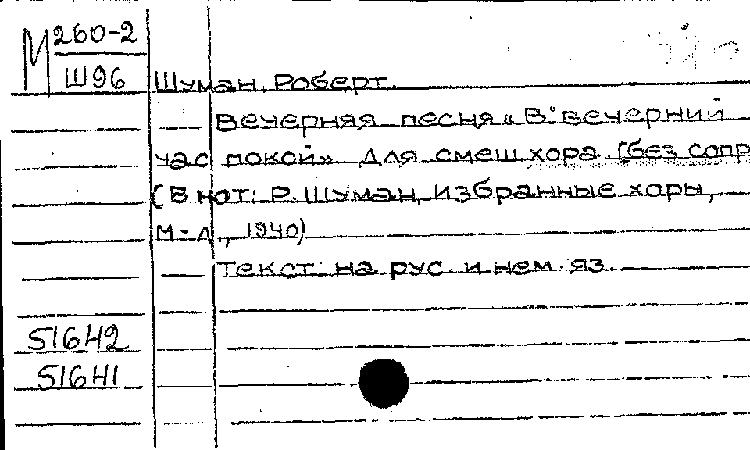 М 260-2
Ш96
Шуман, Роберт.
Вечерняя песня „В вечерний
час покой" Для смеш хора (без сопр
(В нот: Р. Шуман, избранные хоры,
М-Л., 1940)
Текст: на рус. и нем. яз.
51642
51641